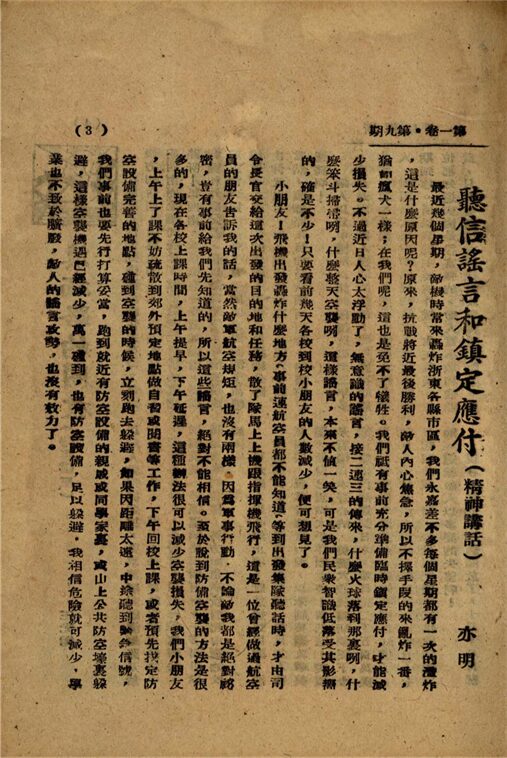 第一卷•第九期
(3)
聽信謠言和鎮定應付(精神講話)
亦明
最近幾個星期,敵機時常來轟炸浙東各縣市區,我們永嘉差不多每個星期都有一次的遭炸
,這是什麼原因呢?原來,抗戰將近最後勝利,敵人內心焦急,所以不擇手段的來亂炸一番,
猶如瘋犬一樣;在我們呢,這也是免不了犧牲。我們祇有事前充分準備臨時鎮定應付,才能減
少損失。不過近日人心太浮動了,無意識的謠言,接二連三的傳來,什麼火球落到那裏咧,什
麼笨斗掃帚咧,什麼整天空襲咧,這樣謠言,本來不值一笑,可是我們民衆智識低落受其影
的,確是不少!只要看前幾天各校到校小朋友的人數減少,便可想見了。
小朋友!飛機出發轟炸什麼地方?事前連航空員都不能知道,等到出發集隊聽話時,才由司
令長官交給這次出發的目的地和任務,散了隊馬上上機跟指揮機飛行,這是一位曾經做過航空
員的朋友告訴我的話,當然敵軍航空規矩,也沒有兩樣。因爲軍事行動,不論敵我都是絕對祕
密,豈有事前給我們先知道的,所以這些謠言,絕對不能相信。至於說到防備空襲的方法是很
多的,現在各校上課時間,上午提早,下午延遲,這種辦法很可以減少空襲損失,我們小朋友
,上午上了課不妨疏散到郊外預定地點做自習或閱書等工作,下午回校上課,或者預先找定防
空設備完善的地點,碰到空襲的時候,立刻跑去躲避,如果因距離太遠,中途聽到緊急信號,
我們事前也要先行打算妥當,跑到就近有防空設備的親戚或同學家裏,或山上公共防空壕裏躲
避,這樣空襲機遇已經減少,萬一碰到,也有防空設備,足以躲避。我相信危險就可減少,學
業也不致於廢弛,敵人的謠言攻勢,也沒有效力了。